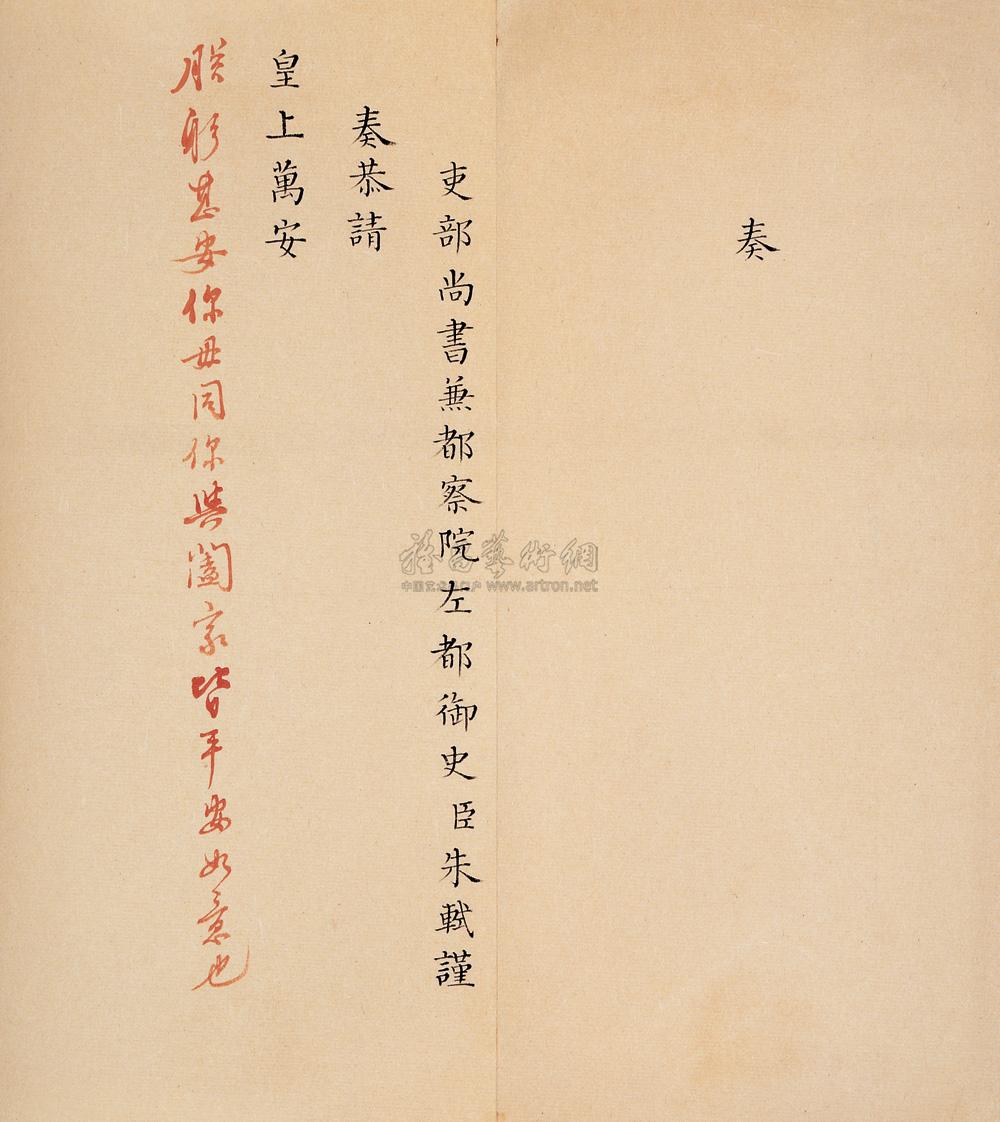 奏
吏部尚書兼都察院左都御史臣朱軾謹
奏恭請
皇上萬安
朕躬甚安你毋同你與闔家皆平安如意也
雅昌藝術網
中国艺术品门户 www.artron.net